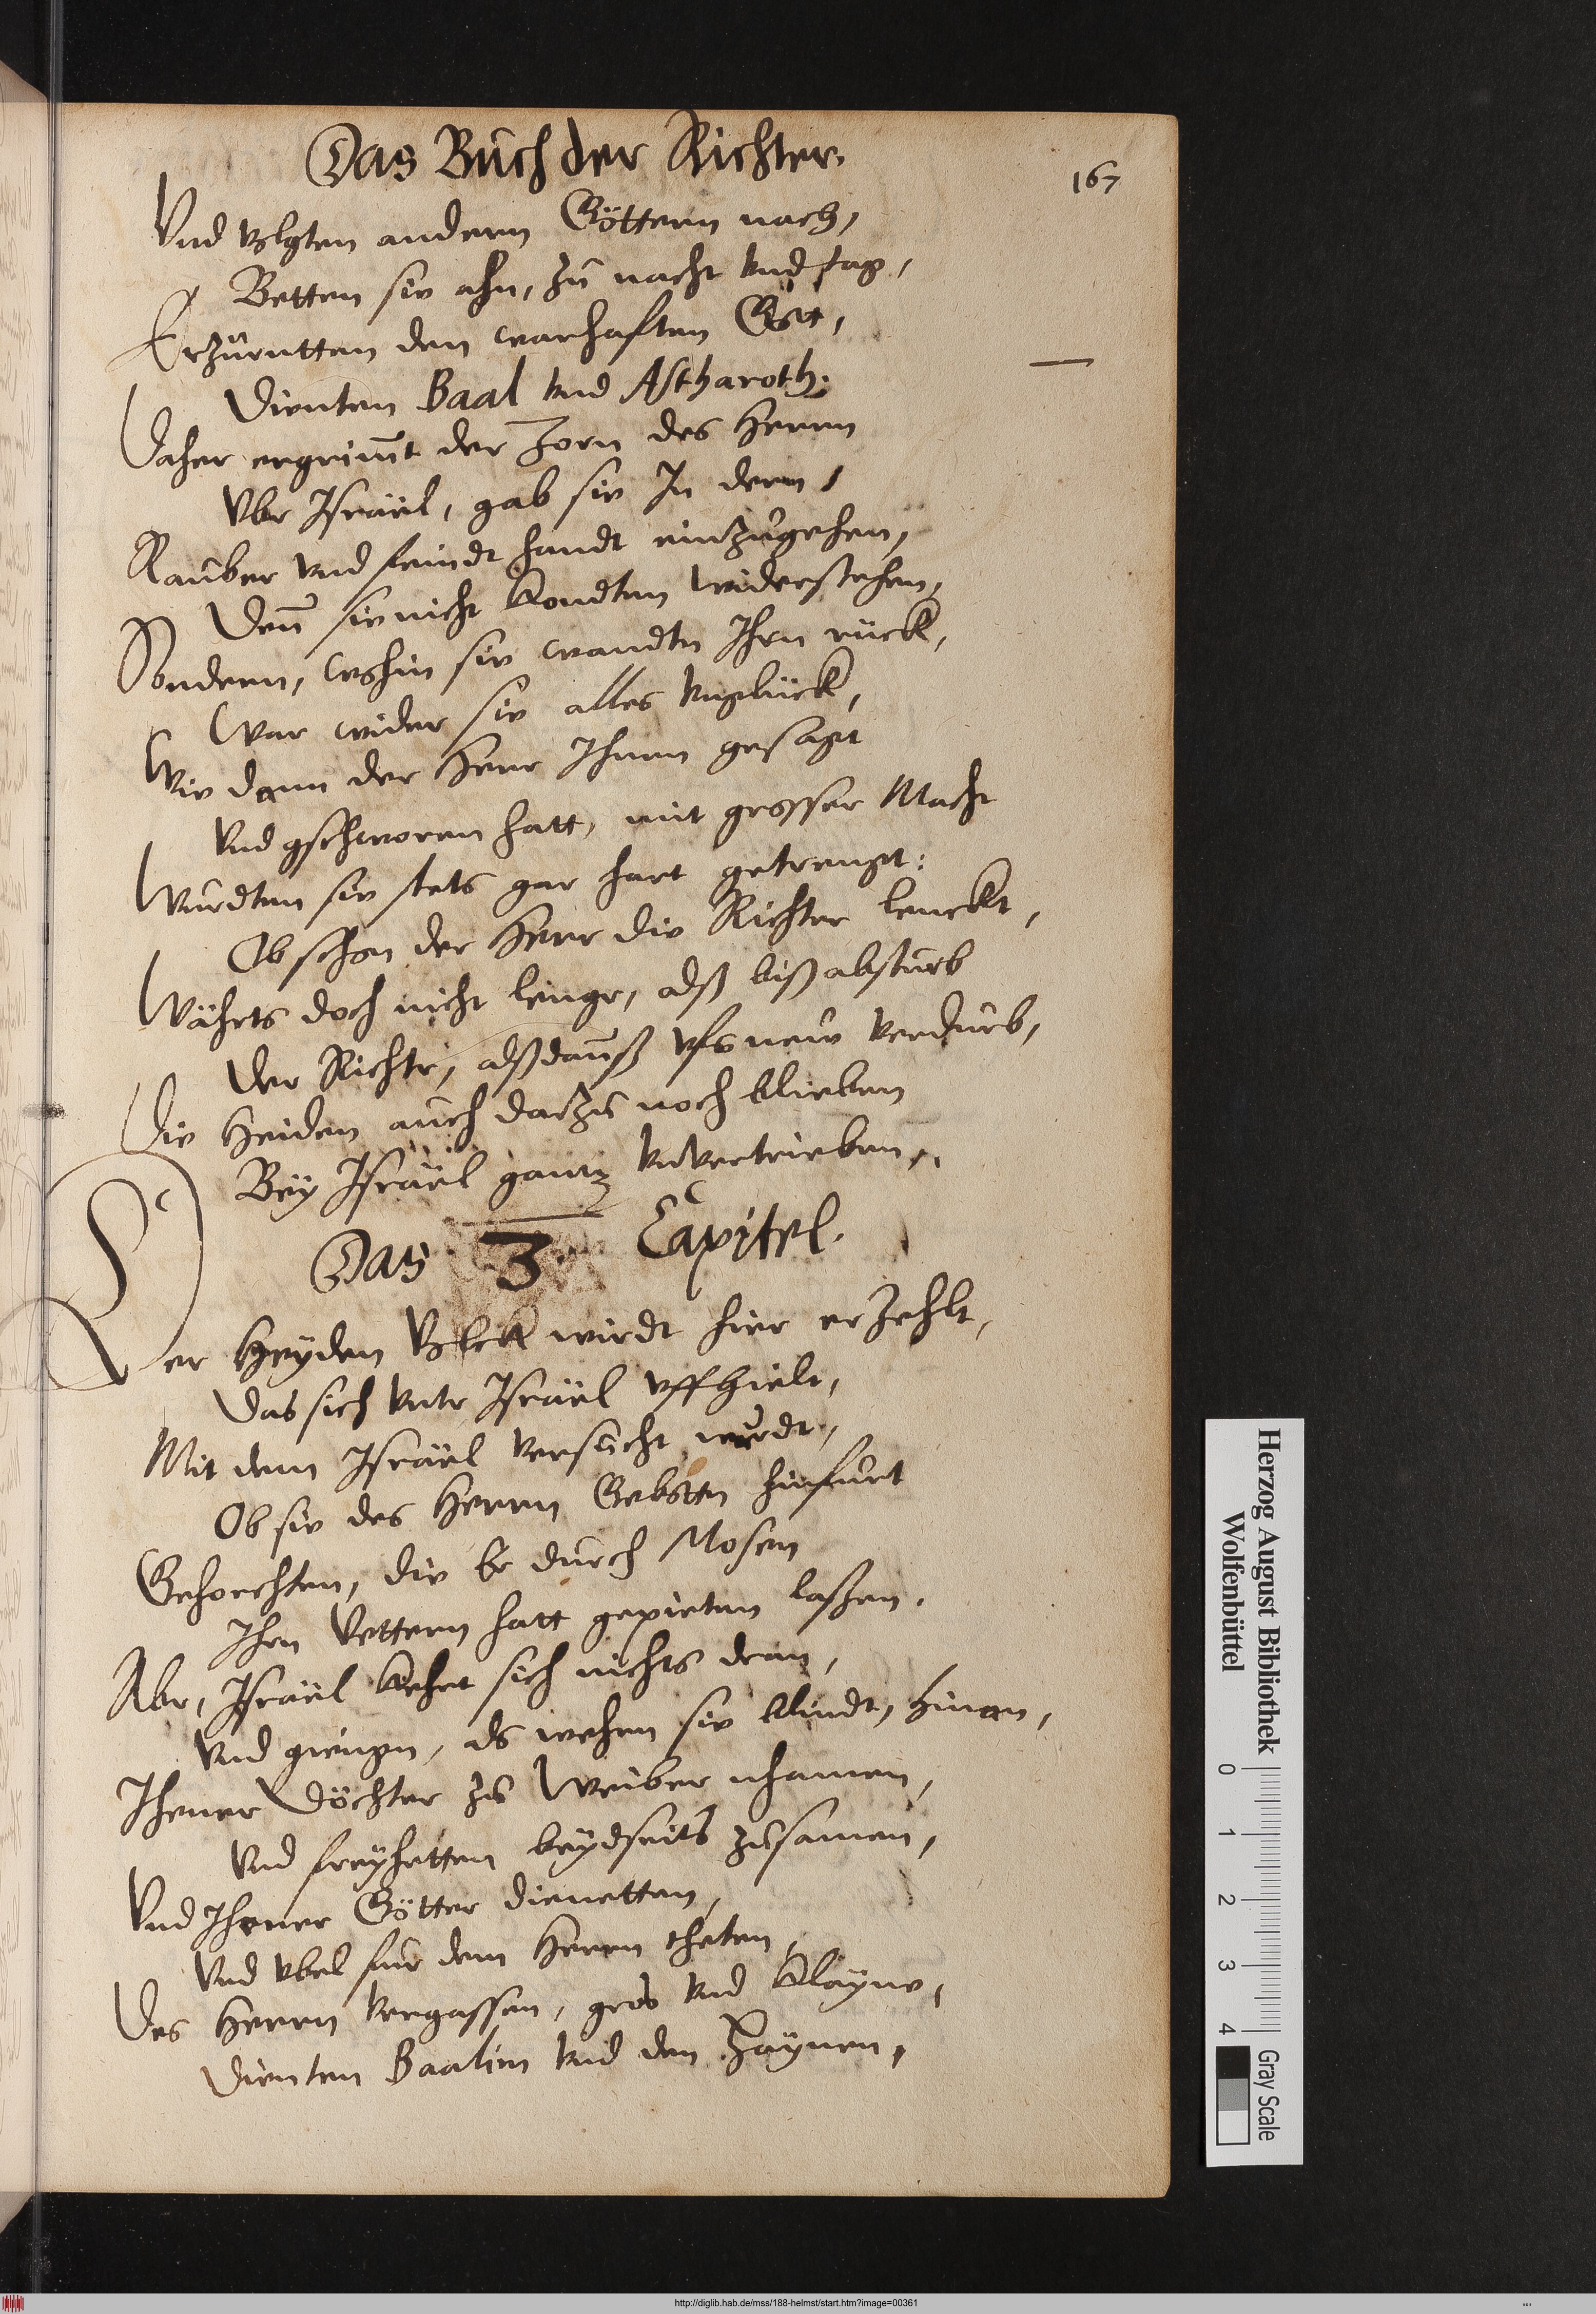 Das Buch der Richter.
167
Vnd volgten andern Göttern nach,
Betten sie ahn, zu nacht vnd tag,
Erzürntten den warhaften Gott,
Dienten Baal vnd Astharoth.
Daher ergrimt der Zorn des Herrn
Vbr Israël, gab sie In dern
Rauber vnd feindt handt einzugehen,
Den sie nicht kondten widerstehen,
Sondern, wohin sie wandtn Ihrn rück,
War wider sie alles vnglück,
Wie dann der Herr Ihnen gesagt
Vnd gschworen hatt, mit grosser Macht
Wurdten sie stets gar hart getrengt:
Ob schon der Herr die Richter lenckt,
Währts doch nicht lengr, alß biß absturb
Der Richtr, alßdanß vfs new verdurb,
Die Heiden auch darzu noch blieben
Bey Israël gantz vnvertrieben.
Das 3. Capitel.
Der Heyden Volck wirdt hier erzehlt,
Das sich vntr Israël vffhielt,
Mit dem Israël versucht wurdt,
Ob sie des Herrn Gebottn hinfurt
Gehorchten, die Er durch Mosen
Ihrn Vettern hatt gepieten laßen.
Abr, Israël kehrt sich nichts dran,
Vnd giengn, als wehrn sie blindt, hinan,
Ihener Döchter zu Weiber nhamen,
Vnd freyhetten beydseits zusamen,
Vnd Ihener Götter dienetten,
Vnd vbel fur dem Herrn theten,
Des Herrn vergassen, gros vnd klayne,
Dienten Baalim vnd den Haynen,
Herzog August Bibliothek
Wolfenbüttel
0 1 2 3 4
Gray Scale
http://diglib.hab.de/mss/188-helmst/start.htm?image=00361